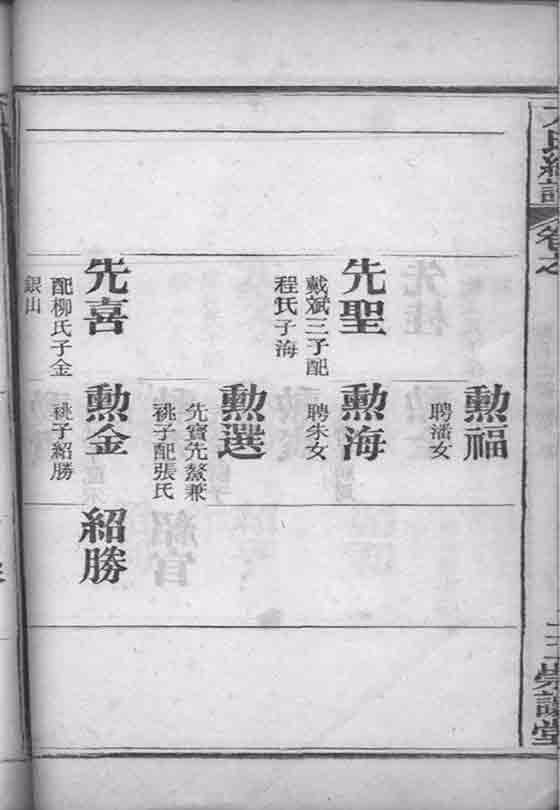 氏統譜
卷之
崇讓堂
勲福
聘潘女
先聖
戴斌三子配
程氏子海
勲海
聘朱女
勲選
先寶先鰲兼
祧子配張氏
先喜
配柳氏子金
銀山
勲金
祧子紹勝
紹勝